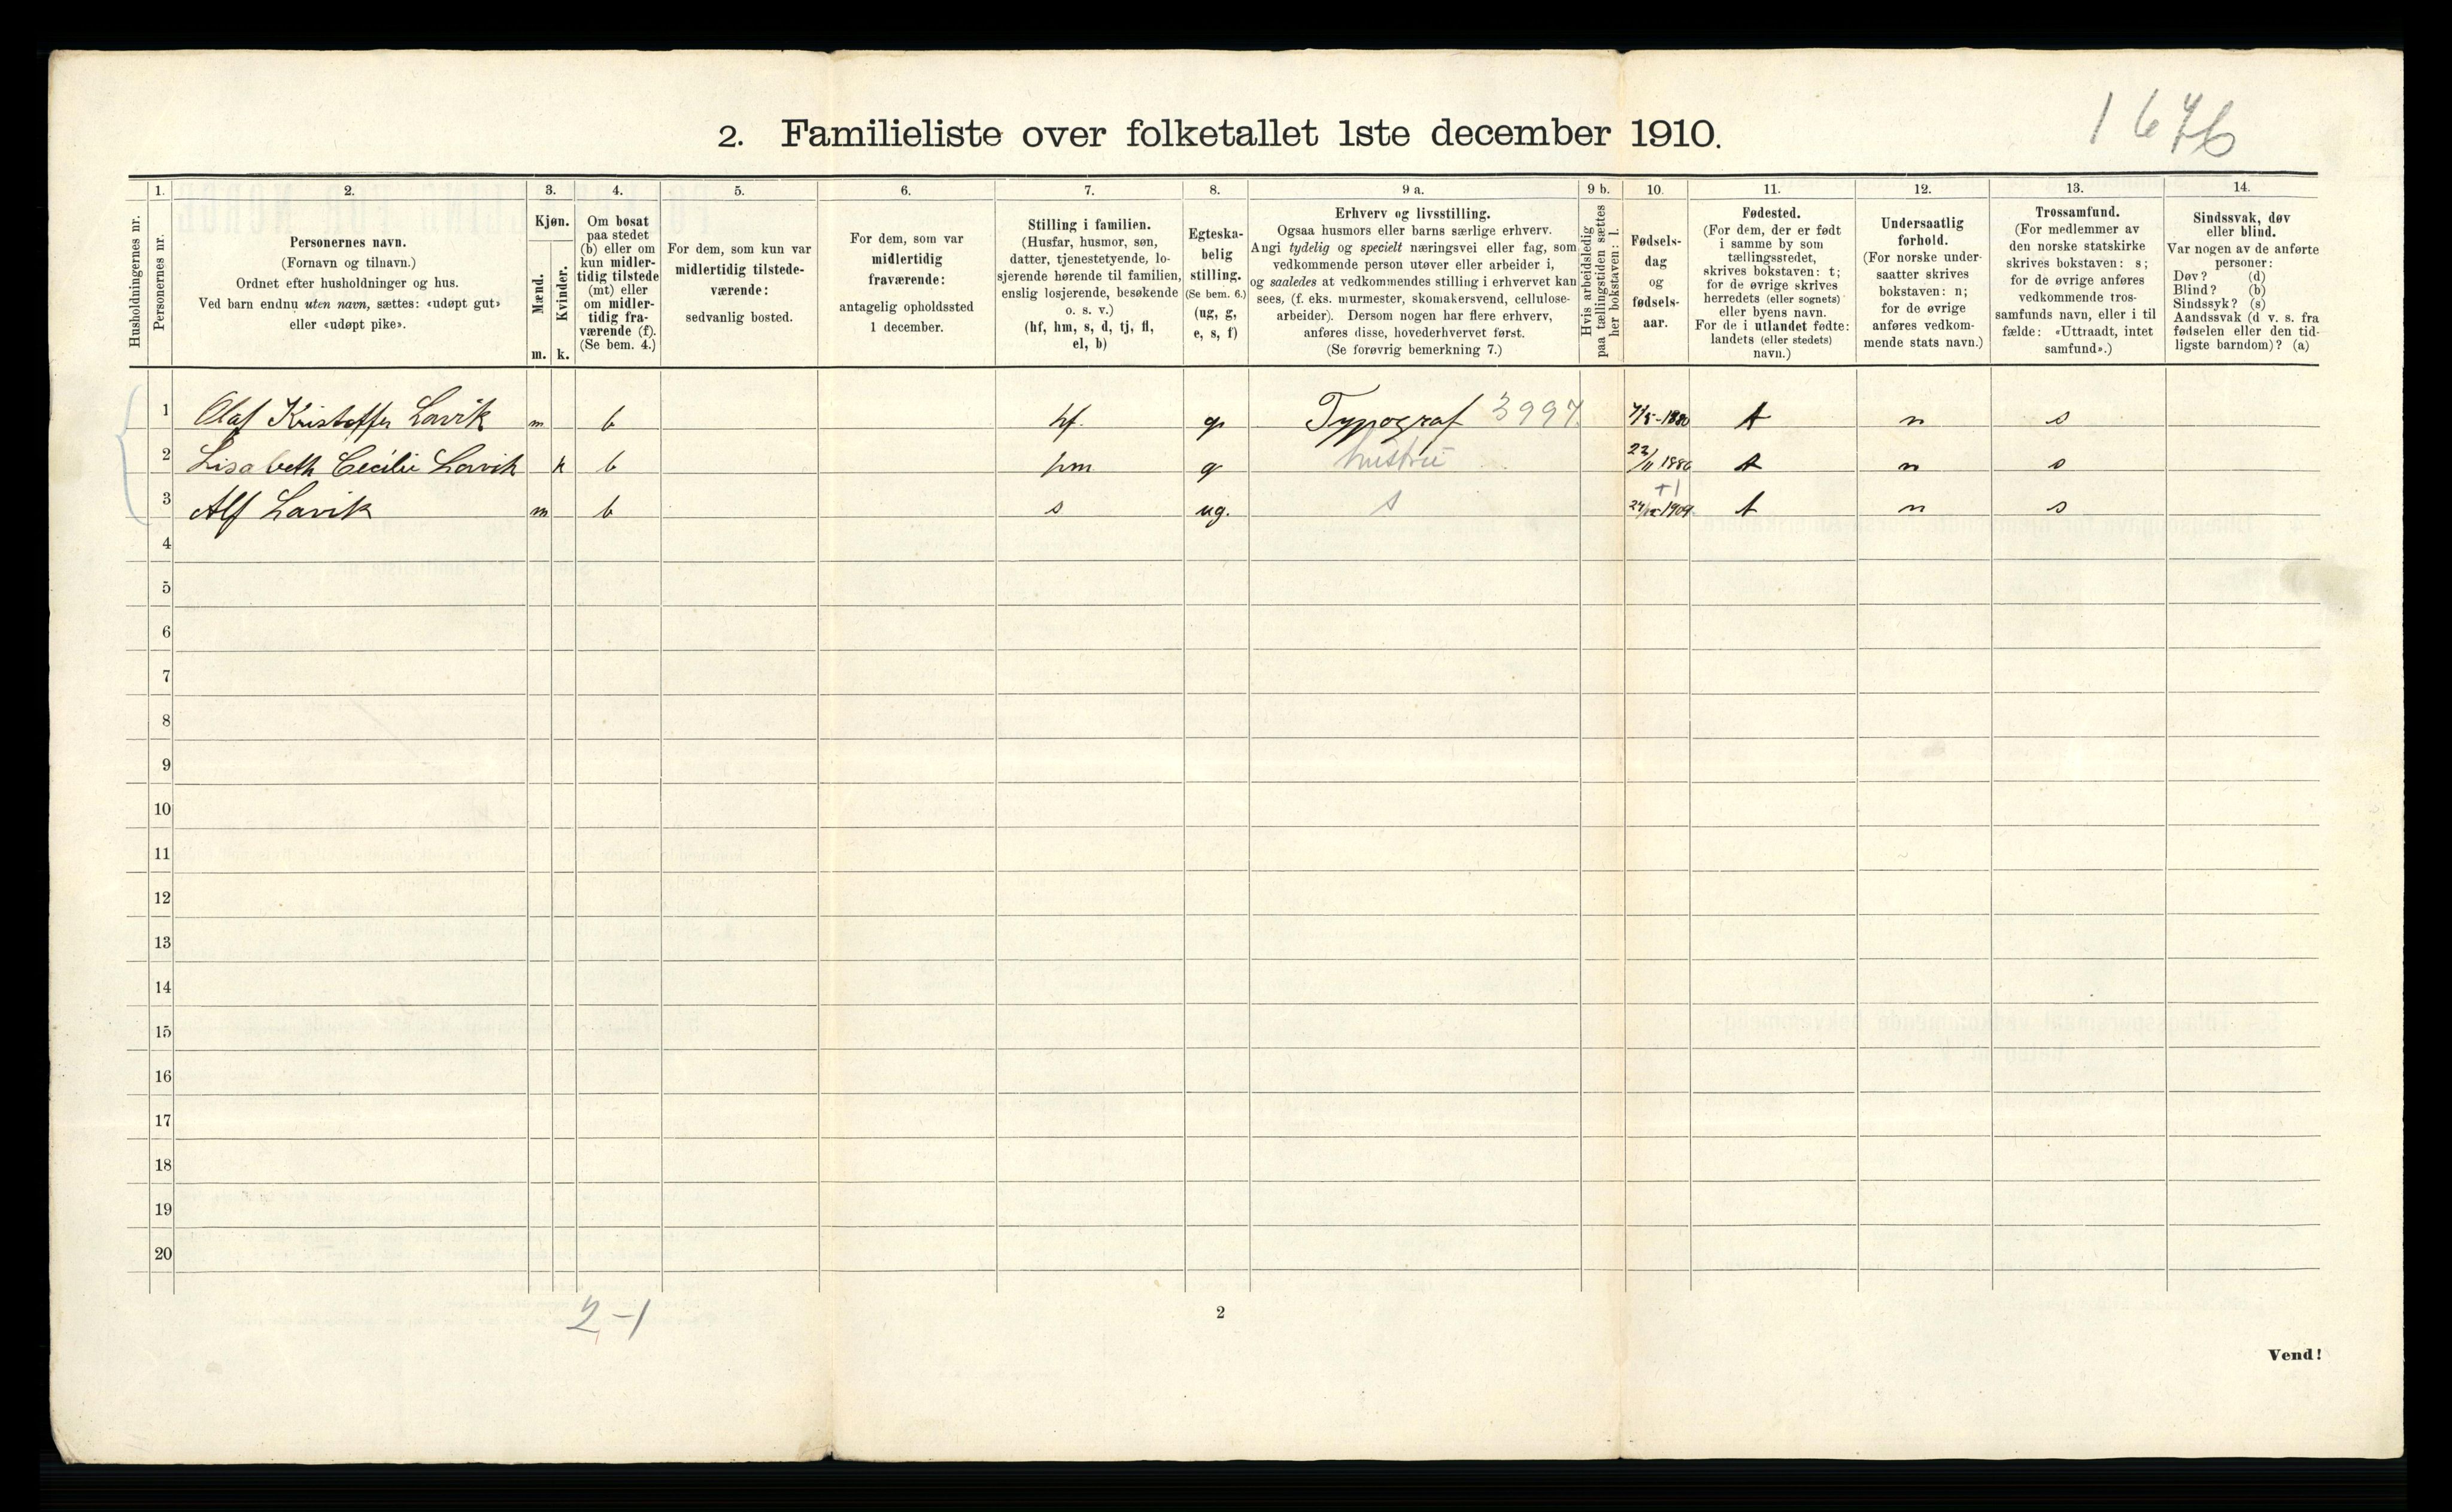 1676
2. Familieliste over folketallet 1ste december 1910.
Husholdningernes nr.
1.
Personernes nr.
2.
Personernes navn.
(Fornavn og tilnavn.)
Ordnet efter husholdninger og hus.
Ved barn endnu uten navn, sættes: «udøpt gut»
eller «udøpt pike».
3.
Kjøn.
Mænd.
Kvinder.
m. k.
4.
Om bosat
paa stedet
(b) eller om
kun midler-
tidig tilstede
(mt) eller
om midler-
tidig fra-
værende (f).
(Se bem. 4.)
5.
For dem, som kun var
midlertidig tilstede-
værende:
sedvanlig bosted.
6.
For dem, som var
midlertidig
fraværende:
antagelig opholdssted
1 december.
7.
Stilling i familien.
(Husfar, husmor, søn,
datter, tjenestetyende, lo-
sjerende hørende til familien,
enslig losjerende, besøkende
o. s. v.)
(hf, hm, s, d, tj, fl,
el, b)
8.
Egteska-
belig
stilling.
(Se bem. 6.)
(ug, g,
e, s, f)
9 a.
Erhverv og livsstilling.
Ogsaa husmors eller barns særlige erhverv.
Angi tydelig og specielt næringsvei eller fag, som
vedkommende person utøver eller arbeider i,
og saaledes at vedkommendes stilling i erhvervet kan
sees, (f. eks. murmester, skomakersvend, cellulose-
arbeider). Dersom nogen har flere erhverv,
anføres disse, hovederhvervet først.
(Se forøvrig bemerkning 7.)
9 b.
Hvis arbeidsledig
paa tællingstiden sættes
her bokstaven: l.
10.
Fødsels-
dag
og
fødsels-
aar.
11.
Fødested.
(For dem, der er født
i samme by som
tællingsstedet,
skrives bokstaven: t;
for de øvrige skrives
herredets (eller sognets)
eller byens navn.
For de i utlandet fødte:
landets (eller stedets)
navn.)
12.
Undersaatlig
forhold.
(For norske under-
saatter skrives
bokstaven: n;
for de øvrige
anføres vedkom-
mende stats navn.)
13.
Trossamfund.
(For medlemmer av
den norske statskirke
skrives bokstaven: s;
for de øvrige anføres
vedkommende tros-
samfunds navn, eller i til
fælde: «Uttraadt, intet
samfund».)
14.
Sindssvak, døv
eller blind.
Var nogen av de anførte
personer:
Døv? (d)
Blind? (b)
Sindssyk? (s)
Aandssvak (d v. s. fra
fødselen eller den tid-
ligste barndom)? (a)
1 Olaf Kristoffer Lavik m b hf. g Typograf 3997 7/5-1880 t n s
2 Lisabeth Cecilie Lavik k b hm g hustru 22/11 1886 t n s
+1
3 Alf Lavik m b s ug. s 24/12-1909 t n s
4
5
6
7
8
9
10
11
12
13
14
15
16
17
18
19
20
2-1
2
Vend!